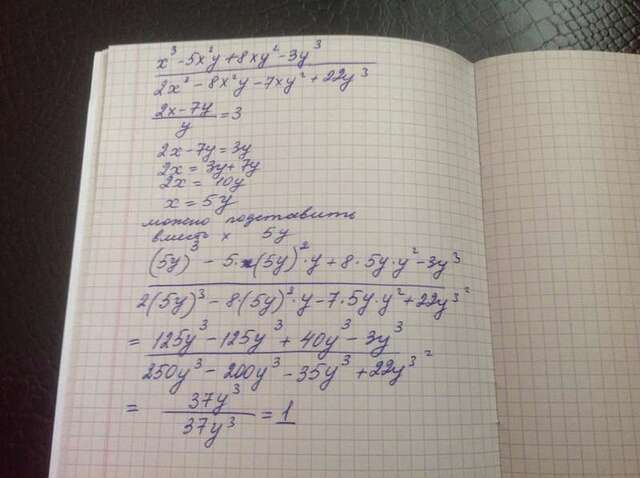 x³ - 5x²y + 8xy² - 3y³
2x³ - 8x²y - 7xy² + 22y³
2x - 7y
y
= 3
2x - 7y = 3y
2x = 3y + 7y
2x = 10y
x = 5y
можно подставить
вместо x 5y
(5y)³ - 5·(5y)²·y + 8·5y·y² - 3y³
2(5y)³ - 8(5y)²·y - 7·5y·y² + 22y³ =
= 125y³ - 125y³ + 40y³ - 3y³
250y³ - 200y³ - 35y³ + 22y³ =
= 37y³
37y³
= 1